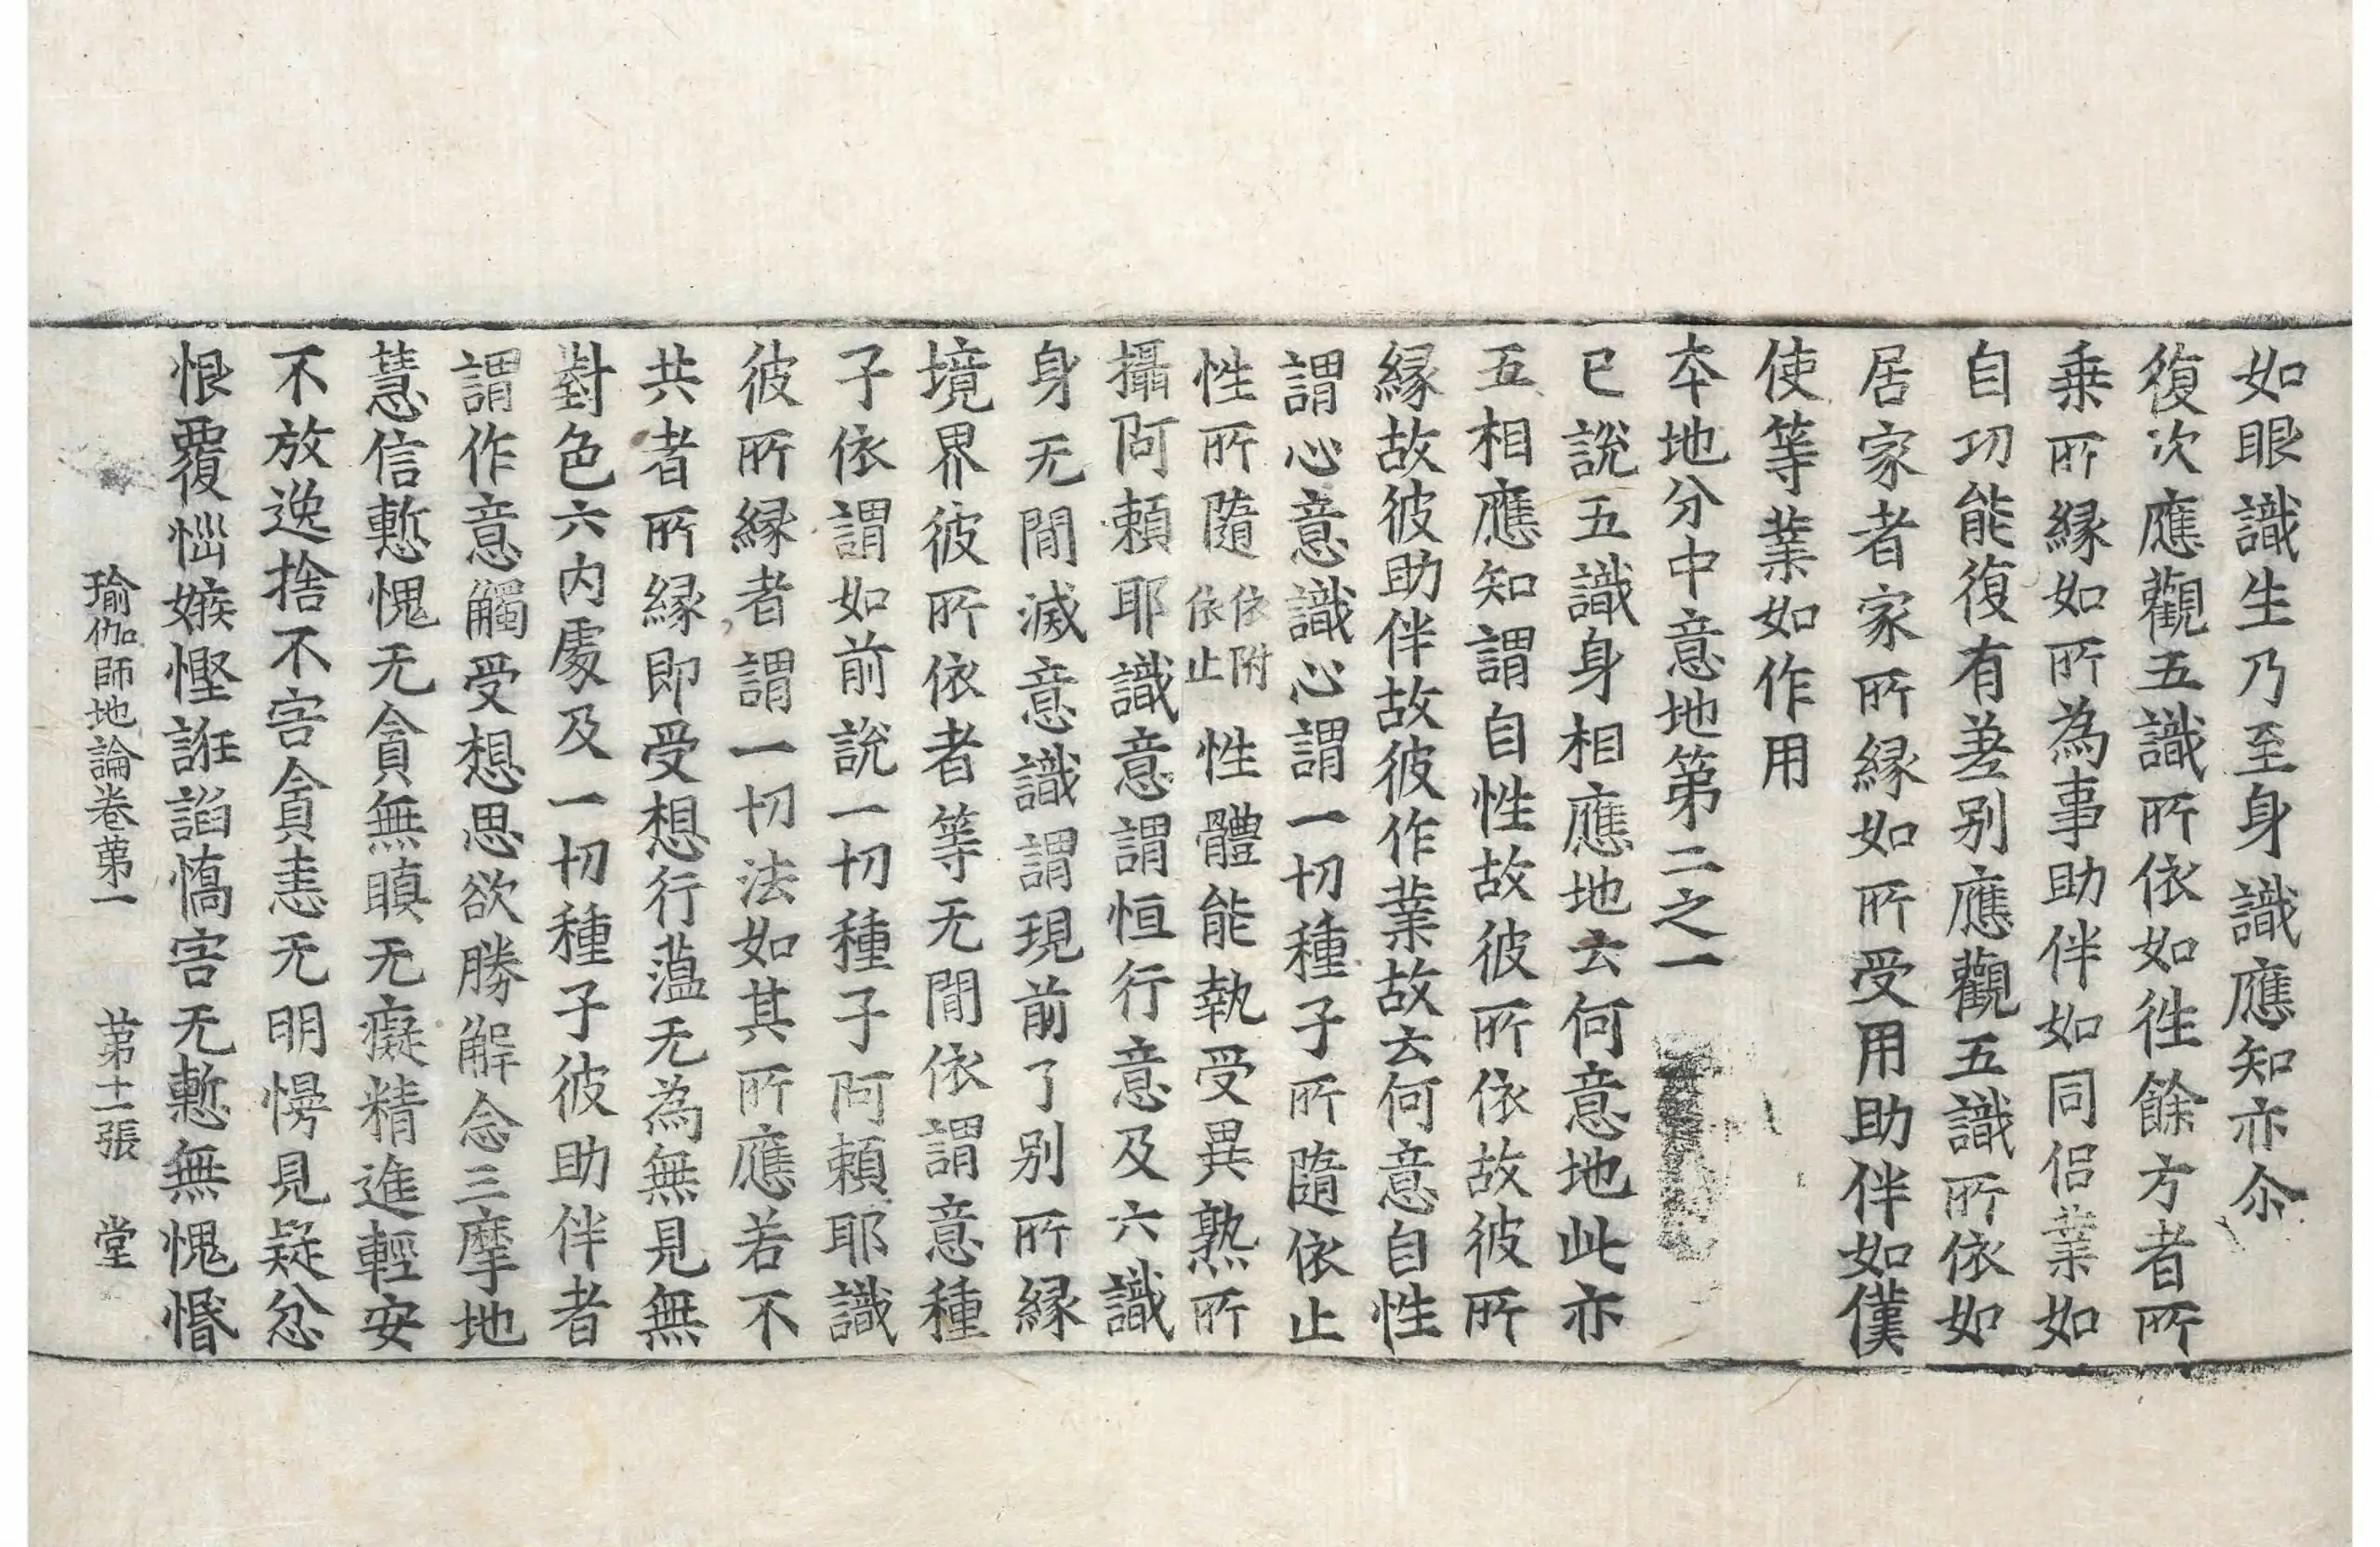 如眼識生乃至身識應知亦尒
復次應觀五識所依如徃餘方者所
乗所縁如所為事助伴如同侣業如
自功能復有差别應觀五識所依如
居家者家所縁如所受用助伴如僕
使等業如作用
夲地分中意地第二之一
已說五識身相應地云何意地此亦
五相應知謂自性故彼所依故彼所
縁故彼助伴故彼作業故云何意自性
謂心意識心謂一切種子所隨依止
性所隨依附依止性體能執受異熟所
攝阿頼耶識意謂恒行意及六識
身无閒滅意識謂現前了别所縁
境界彼所依者等无閒依謂意種
子依謂如前說一切種子阿頼耶識
彼所縁者謂一切法如其所應若不
共者所縁即受想行藴无為無見無
對色六内處及一切種子彼助伴者
謂作意觸受想思欲勝解念三摩地
慧信慙愧无貪無瞋无癡精進輕安
不放逸捨不害貪恚无明慢見疑忿
恨覆惱嫉慳誑諂憍害无慙無愧惛
瑜伽師地論卷第一 第十二張 堂